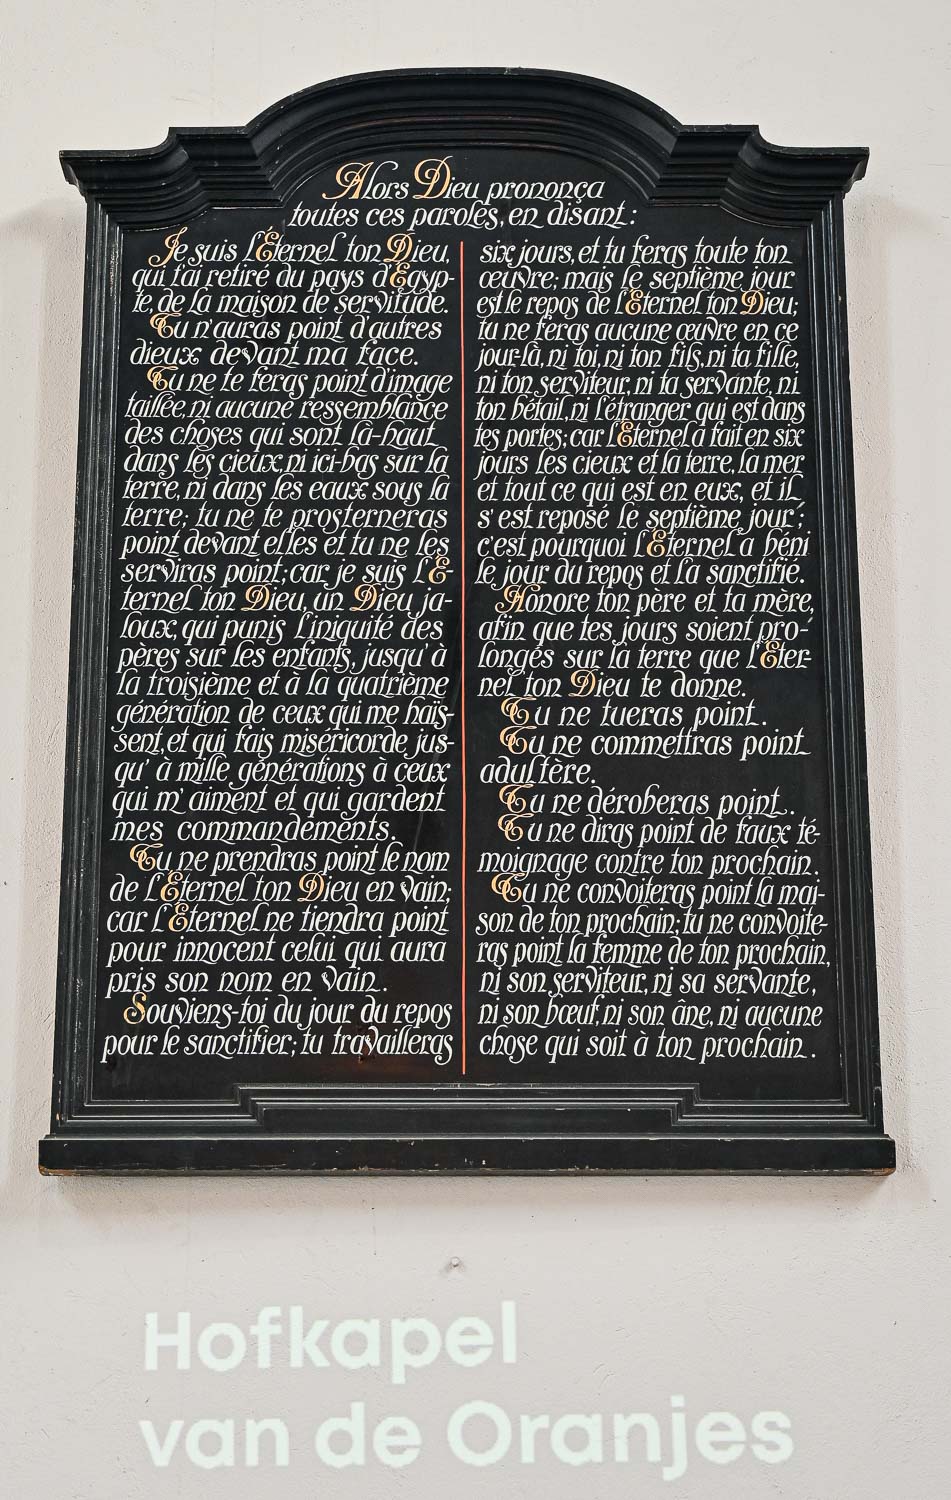 Alors Dieu prononça
toutes ces paroles, en disant:
Je suis l'Éternel ton Dieu,
qui t'ai retiré du pays d'Egyp-
te, de la maison de servitude.
Tu n'auras point d'autres
dieux devant ma face.
Tu ne te feras point d'image
taillée, ni aucune ressemblance
des choses qui sont là-haut
dans les cieux, ni ici-bas sur la
terre, ni dans les eaux sous la
terre; tu ne te prosterneras
point devant elles et tu ne les
serviras point; car je suis l'É-
ternel ton Dieu, un Dieu ja-
loux, qui punis l'iniquité des
pères sur les enfants, jusqu'à
la troisième et à la quatrième
génération de ceux qui me haïs-
sent, et qui fais miséricorde jus-
qu' à mille générations à ceux
qui m' aiment et qui gardent
mes commandements.
Tu ne prendras point le nom
de l'Éternel ton Dieu en vain;
car l'Éternel ne tiendra point
pour innocent celui qui aura
pris son nom en vain.
Souviens-toi du jour du repos
pour le sanctifier; tu travailleras
six jours, et tu feras toute ton
œuvre; mais le septième jour
est le repos de l'Éternel ton Dieu;
tu ne feras aucune œuvre en ce
jour-là, ni toi, ni ton fils, ni ta fille,
ni ton serviteur, ni ta servante, ni
ton bétail, ni l'étranger qui est dans
tes portes; car l'Éternel a fait en six
jours les cieux et la terre, la mer
et tout ce qui est en eux, et il
s'est reposé le septième jour;
c'est pourquoi l'Éternel a béni
le jour du repos et l'a sanctifié.
Honore ton père et ta mère,
afin que tes jours soient pro-
longés sur la terre que l'Éter-
nel ton Dieu te donne.
Tu ne tueras point.
Tu ne commettras point
adultère.
Tu ne déroberas point.
Tu ne diras point de faux té-
moignage contre ton prochain.
Tu ne convoiteras point la mai-
son de ton prochain; tu ne convoite-
ras point la femme de ton prochain,
ni son serviteur, ni sa servante,
ni son bœuf, ni son âne, ni aucune
chose qui soit à ton prochain.
Hofkapel
van de Oranjes